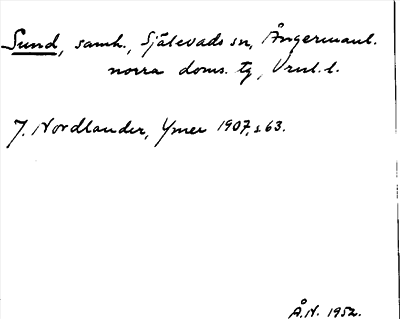 Sund, samh., Själevads sn, Ångermanl.
norra doms. tg, Vrnl. l.
J. Nordlander, Ymer 1907, s 63.
Å.N. 1952.